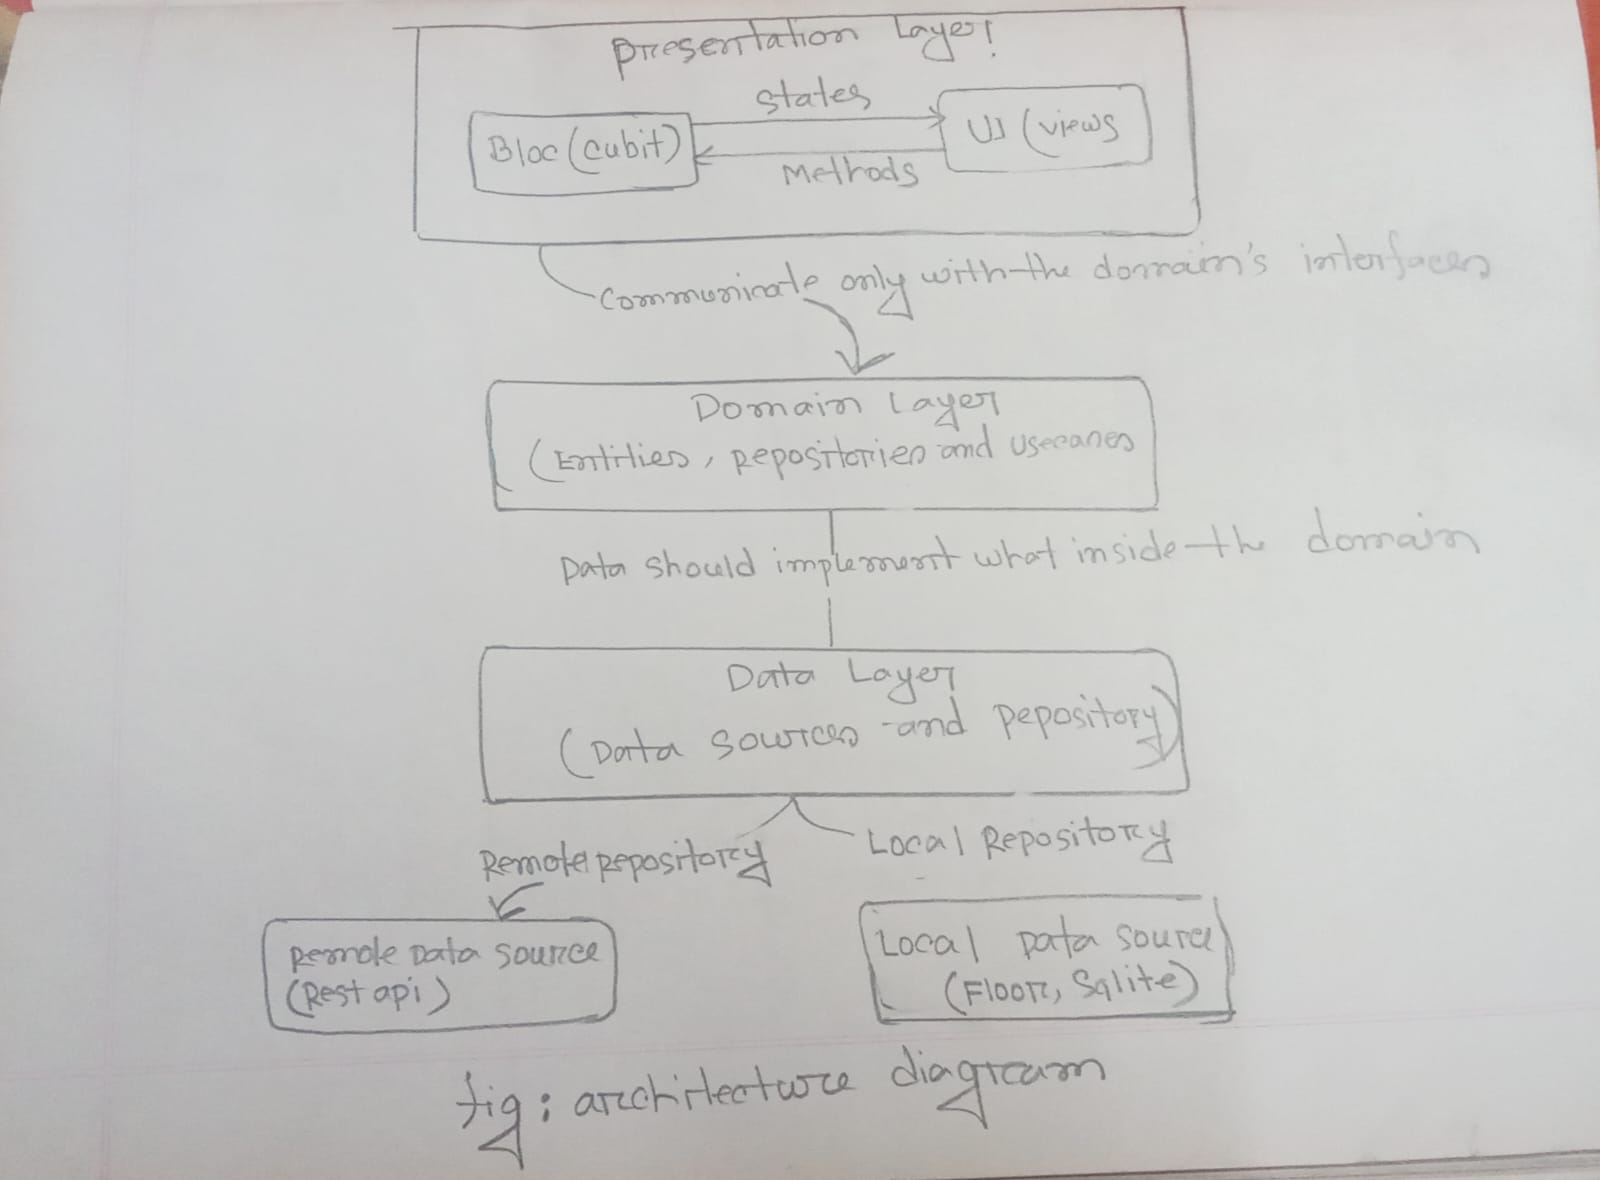 Presentation Layer!
States
Bloc(cubit)
UI (views
Methods
Communicate only with the domain's interfaces
Domain Layer
(Entities, Repositories and usecases
Data should implement what inside the domain
Data Layer
(Data sources and Repository)
Local Repository
Remote Repository
Remote Data source
(Rest api)
Local Data source
(Floor, Sqlite)
fig: architecture diagram